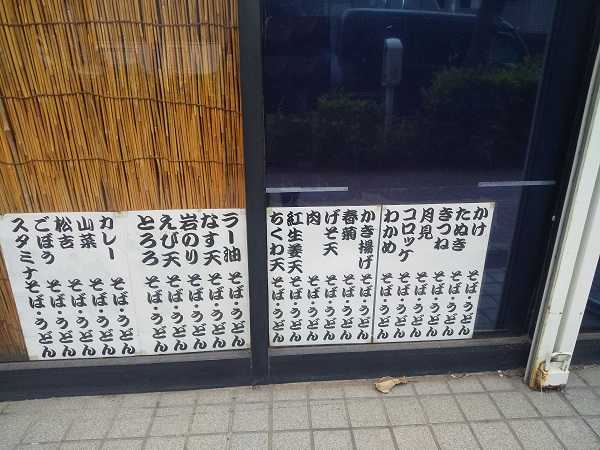 かけ そば・うどん
たぬき そば・うどん
きつね そば・うどん
月見 そば・うどん
コロッケ そば・うどん
わかめ そば・うどん
かき揚げ そば・うどん
春菊 そば・うどん
げそ天 そば・うどん
肉 そば・うどん
紅生姜天 そば・うどん
ちくわ天 そば・うどん
ラー油 そば・うどん
なす天 そば・うどん
岩のり そば・うどん
えび天 そば・うどん
とろろ そば・うどん
カレー そば・うどん
山菜 そば・うどん
松吉 そば・うどん
ごぼう そば・うどん
スタミナ そば・うどん